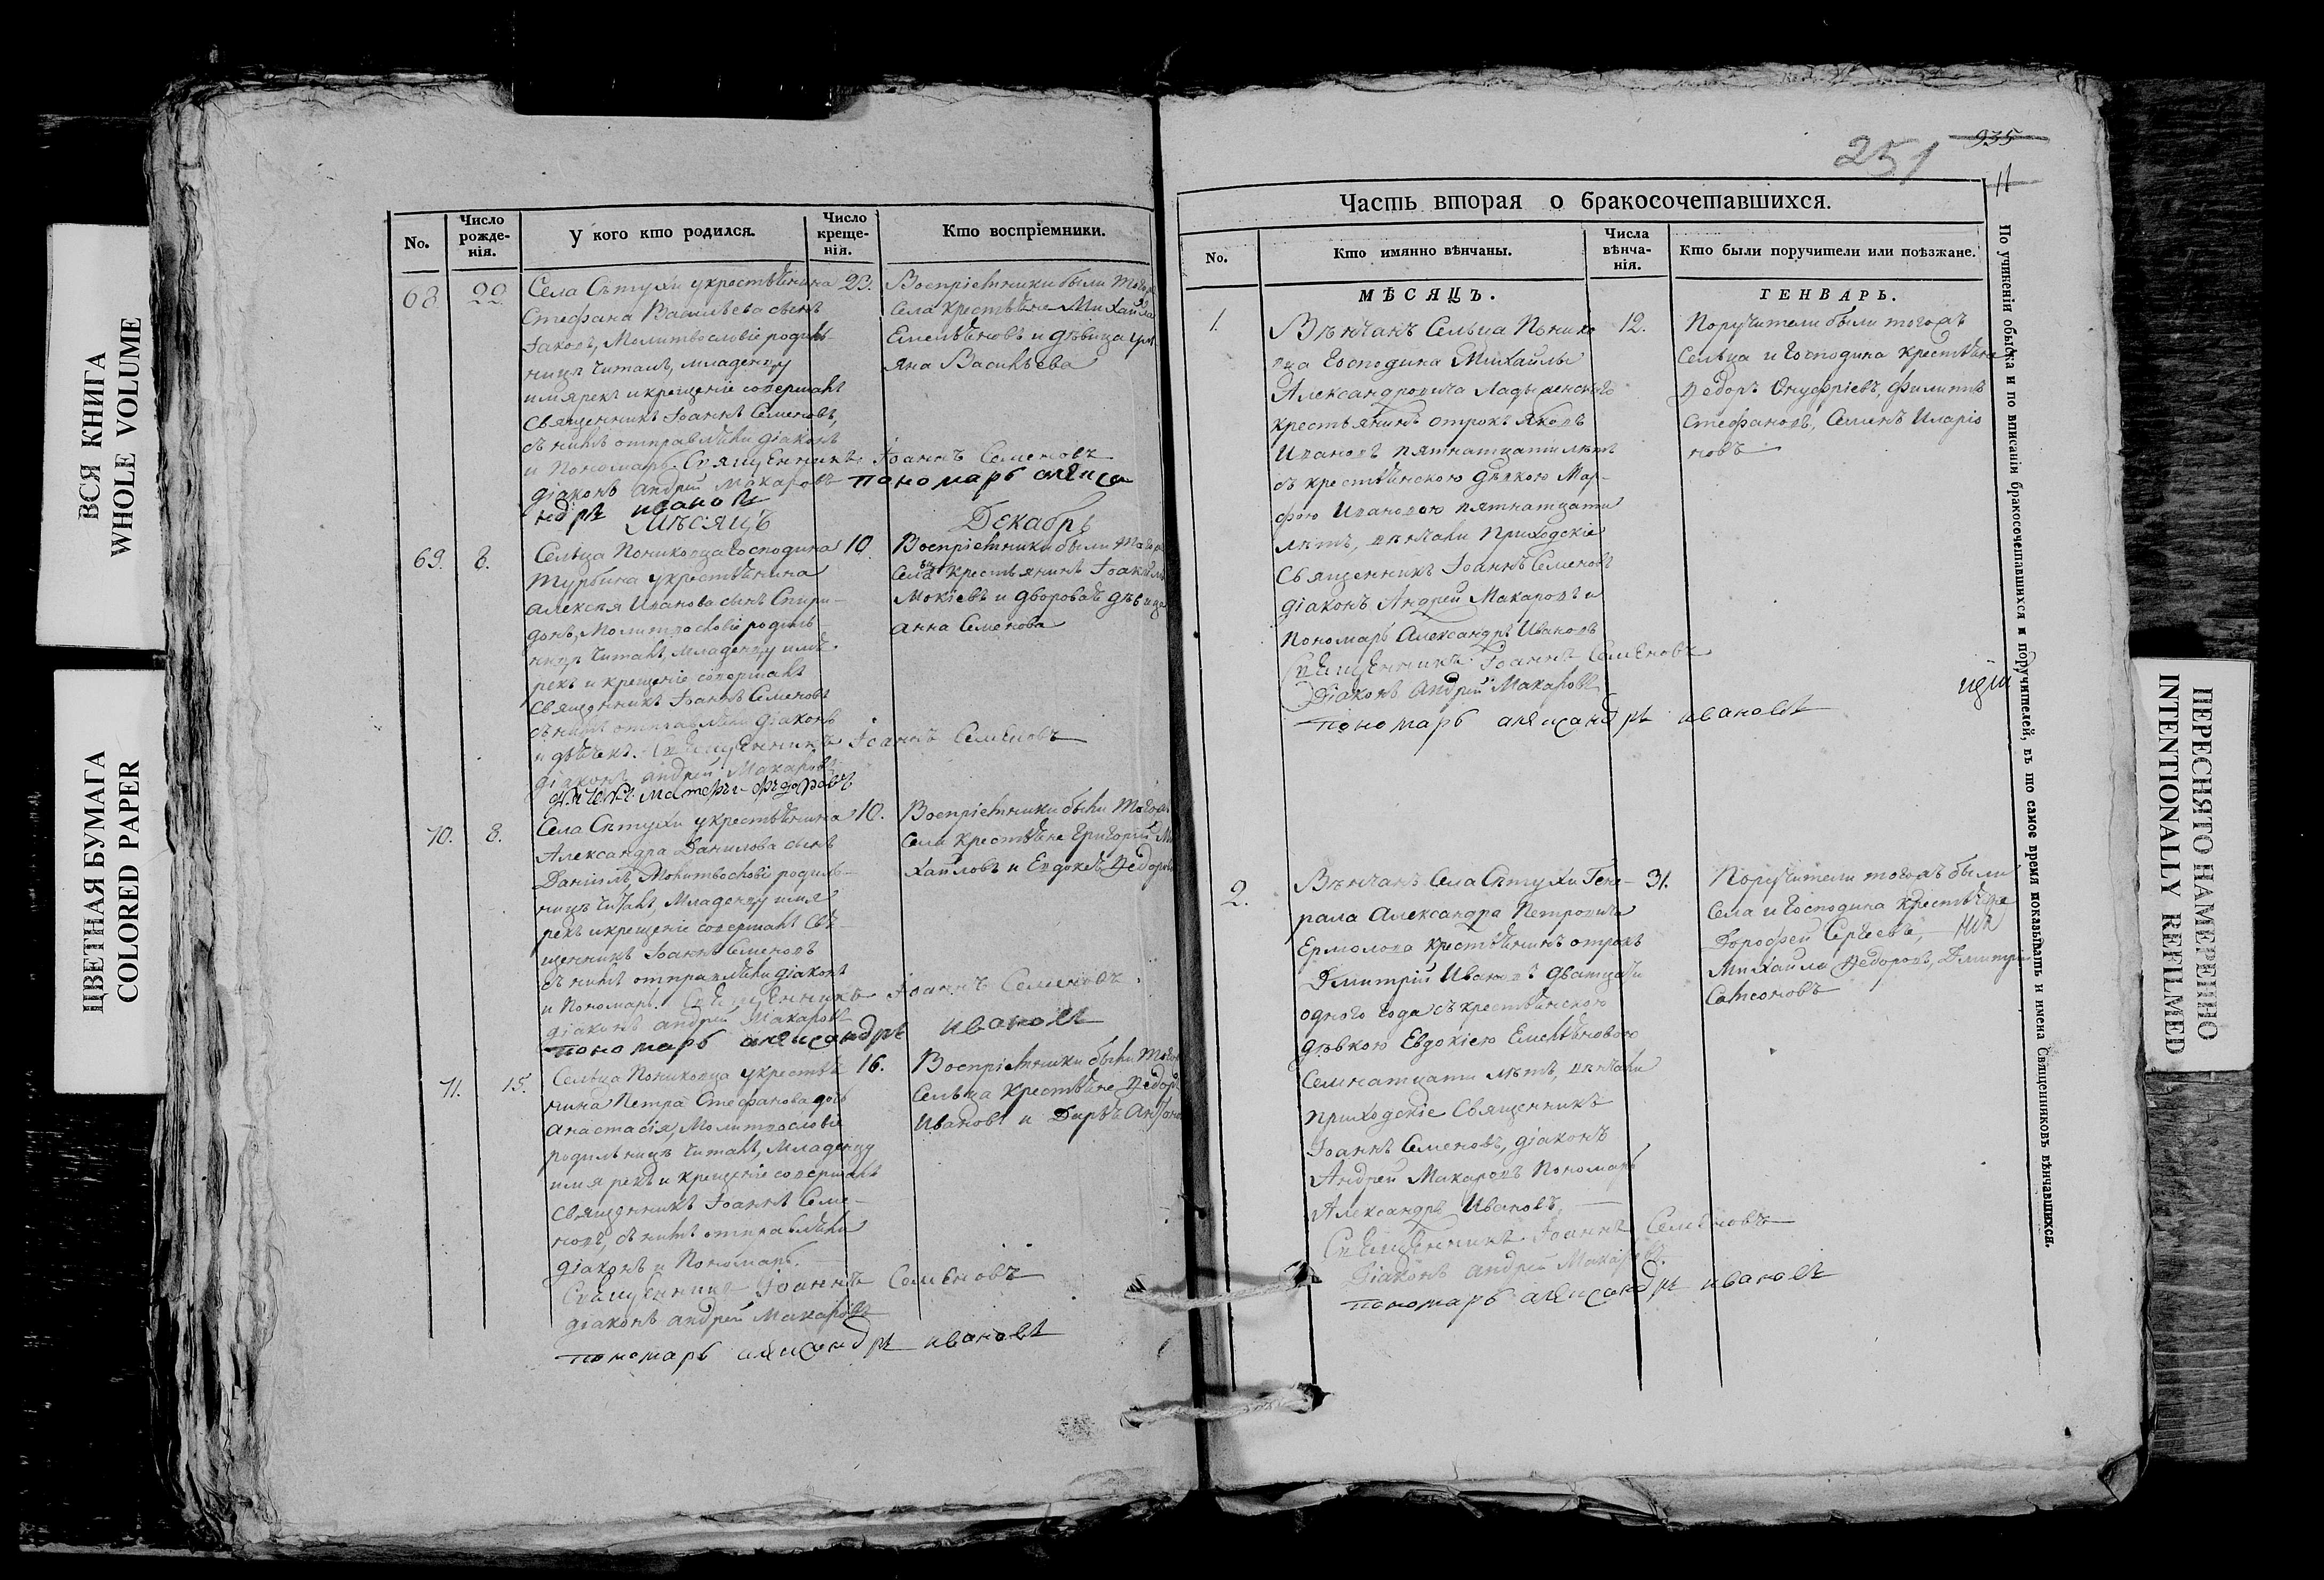 ВСЯ КНИГА
WHOLE VOLUME
ЦВЕТНАЯ БУМАГА
COLORED PAPER
No.
Число рожде-нія.
У кого кто родился.
Число креще-нія.
Кто воспріемники.
68 22. Села Сѣтухи у крестьянина 23. Воспріемники были тогож
Стефана Васильева сынъ села крестьяне Михайла
Іаковъ, Молитвословіе родиль- Емельяновъ и девица
ницѣ читалъ, младенцу Васильева
имя рекъ и крещеніе совершалъ
священникъ Іоаннъ Семеновъ,
съ нимъ отправляли діаконъ
и Пономарь. Священникъ Іоаннъ Семеновъ
діаконъ андрей Макаровъ пономарь алекса
ндръ ивановъ
Мѣсяцъ Декабрь
69. 8. Сельца Пониковца Господина 10. Воспріемники были тогож
Турбина у крестьянина села крестьянинъ
алексѣя Иванова сынъ Спири- Мокіевъ и дворовая дѣвица
донъ, Молитвословіе родиль- анна Семенова
ницѣ читалъ, младенцу имя
рекъ и крещеніе совершалъ
священникъ Іоаннъ Семеновъ
съ нимъ отправляли діаконъ
и дьячекъ. Священникъ Іоаннъ Семеновъ
діаконъ андрей Макаровъ
70. 8. Села Сѣтухи у крестьянина 10. Воспріемники были тогожъ
Александра Данилова сынъ села крестьяне Григорій Ми
Даніилъ, Молитвословіе родиль- хайловъ и Евдокея Федорова
ницѣ читалъ, Младенцу имя
рекъ и крещеніе совершалъ Свя-
щенникъ Іоаннъ Семеновъ
съ нимъ отправляли діаконъ
и Пономарь. Священникъ Іоаннъ Семеновъ
діаконъ андрей Макаровъ
пономарь александръ ивановъ
71. 15. Сельца Пониковца у крестья- 16. Воспріемники были тогож
нина Петра Стефанова дочь сельца крестьяне Федоръ
анастасія, Молитвословіе Ивановъ и Дарья
родильницѣ читалъ, Младенцу
имя рекъ и крещеніе совершалъ
священникъ Іоаннъ Семе-
новъ, съ нимъ отправляли
діаконъ и Пономарь.
Священникъ Іоаннъ Семеновъ
діаконъ андрей Макаровъ
пономарь александръ ивановъ
251
935
11
Часть вторая о бракосочетавшихся.
No.
Кто имянно вѣнчаны.
Числа вѣнча-нія.
Кто были поручители или поѣзжане.
МѢСЯЦЪ.
ГЕНВАРЬ.
1. Вѣнчанъ Сельца Понико 12. Поручители были тогожъ
вца Господина Михайлы сельца и Господина крестьяне
Александровича Ладыженскаго Федоръ Онуфріевъ, Филиппъ
крестьянинъ отрокъ Яковъ Стефановъ, Семенъ Иларіо
Ивановъ пятнатцати лѣтъ новъ
съ крестьянскою дѣвкою Мар-
фою Ивановою пятнатцати
лѣтъ, вѣнчали Приходскіе
Священникъ Іоаннъ Семеновъ
діаконъ Андрей Макаровъ и
пономарь Александръ Ивановъ
Священникъ Іоаннъ Семеновъ
Діаконъ андрей Макаровъ
пономарь александръ ивановъ
2. Вѣнчанъ Села Сѣтухи Гене- 31. Поручители тогожъ были
рала Александра Петровича села и Господина крестьяне
Ермолова крестьянинъ отрокъ Дорофей Сергеевъ,
Димитрій Ивановъ дватцати Михайла Федоровъ, Димитрій
одного года съ крестьянскою Самсоновъ
дѣвкою Евдокіею Емельяновою
семнатцати лѣтъ, вѣнчали
приходскіе Священникъ
Іоаннъ Семеновъ, діаконъ
Андрей Макаровъ Пономарь
Александръ Ивановъ.
Священникъ Іоаннъ Семеновъ
Діаконъ андрей Макаровъ
пономарь александръ ивановъ
По учиненіи обыска и по вписаніи бракосочетавшихся и поручителей, въ то самое время показывать и имена Священниковъ вѣнчавшихся.
ПЕРЕСНЯТО НАМЕРЕННО
INTENTIONALLY REFILMED